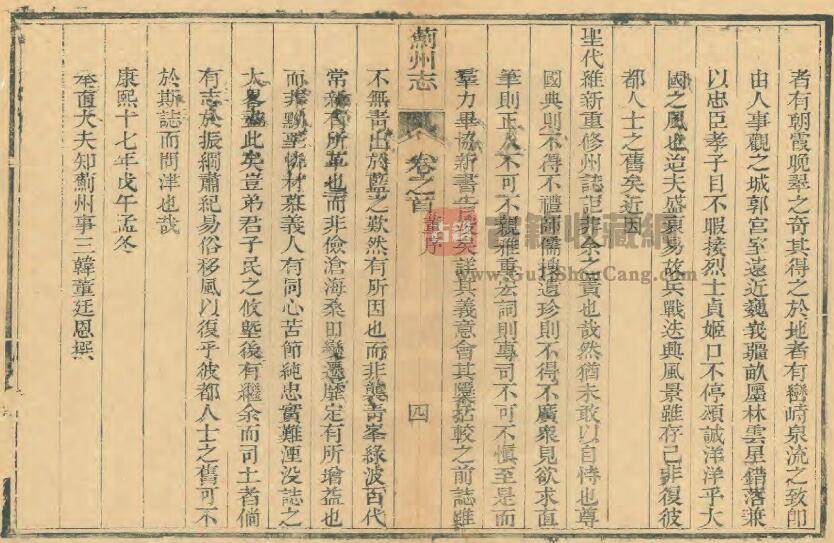 者有朝霞晚翠之奇其得之於地者有巒崎泉流之致即
由人事觀之城郭宮室遠近巍峩疆畝屬林雲星錯落兼
以忠臣孝子目不暇接烈士貞姬口不停頌誠洋洋乎大
國之風也迨夫盛衰易故兵戰迭興風景雖存己非復彼
都人士之舊矣近因
聖代維新重修州誌詎非余之責也哉然猶未敢以自恃也尊
國典則不得不禮師儒搜遺珍則不得不廣衆見欲求直
筆則正人不可不親雅重宏詞則專司不可不慎至是而
羣力畢協新書告矣謹其義意會其隱括較之前誌雖
薊州志
卷之首
董序
四
不無青出於藍之歎然有所因也而非襲青峯綠波百代
常新有所革也而非儉滄海桑田變遷靡定有所增益也
而非黔聖材慕義人有同心苦節純忠實難湮没誌之
大畧此矣豈弟君子民之攸塈後有繼余而司土者倘
有志於振綱肅紀易俗移風以復乎彼都人士之舊可不
於斯誌而問津也哉
康熙十七年戊午孟冬
奉直大夫知薊州事三韓董廷恩撰
古籍收藏網
www.GuJiShouCang.com